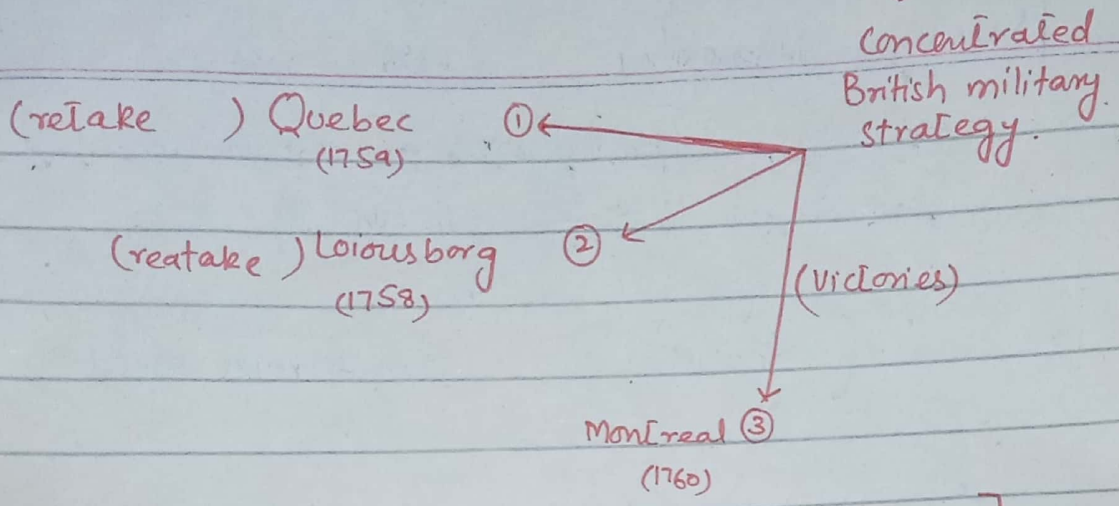 Concentrated
British military
strategy.
(retake ) Quebec ①
(1759)
(reatake ) Loiousborg ②
(1758)
(Victories)
Montreal ③
(1760)